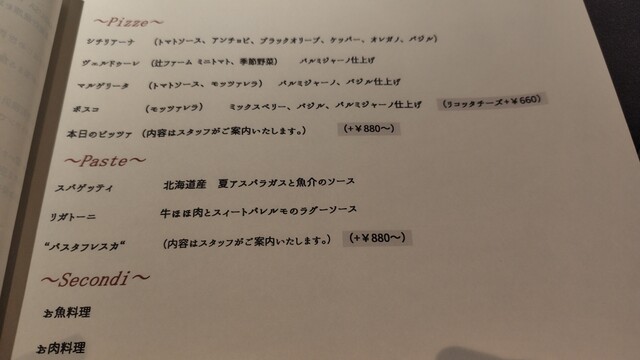 ～Pizze～
シチリアーナ （トマトソース、アンチョビ、ブラックオリーブ、ケッパー、オレガノ、バジル）
ヴェルドゥーレ （辻ファーム ミニトマト、季節野菜） パルミジャーノ仕上げ
マルゲリータ （トマトソース、モッツァレラ） パルミジャーノ、バジル仕上げ
ボスコ （モッツァレラ） ミックスベリー、バジル、パルミジャーノ仕上げ （リコッタチーズ+￥660）
本日のピッツァ （内容はスタッフがご案内いたします。） （+￥880～）
～Paste～
スパゲッティ 北海道産 夏アスパラガスと魚介のソース
リガトーニ 牛ほほ肉とスィートパレルモのラグーソース
“パスタフレスカ“ （内容はスタッフがご案内いたします。） （+￥880～）
～Secondi～
お魚料理
お肉料理